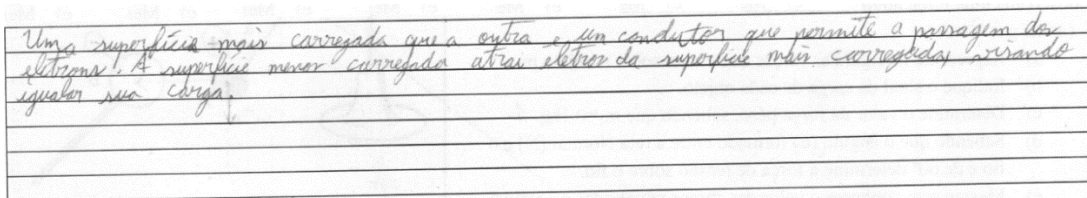 Uma superfície mais carregada que a outra e um condutor que permite a passagem dos
elétrons. A superfície menor carregada atrai eletros da superfície mais carregada, visando
igualar sua carga.